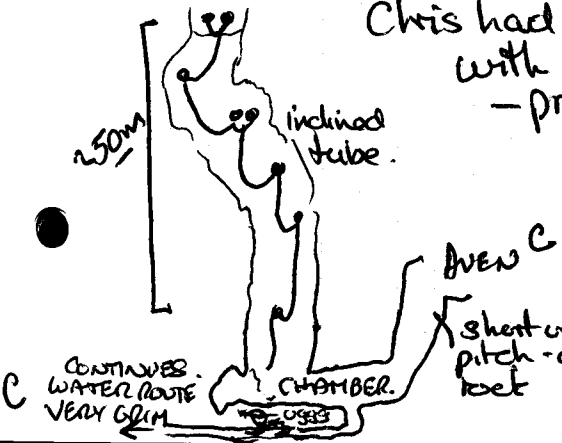 Chris had
with
- pr
inclined
tube.
~50m
AVEN C
short
pitch -
rock
CONTINUES.
C WATER ROUTE
VERY GRIM
CHAMBER.